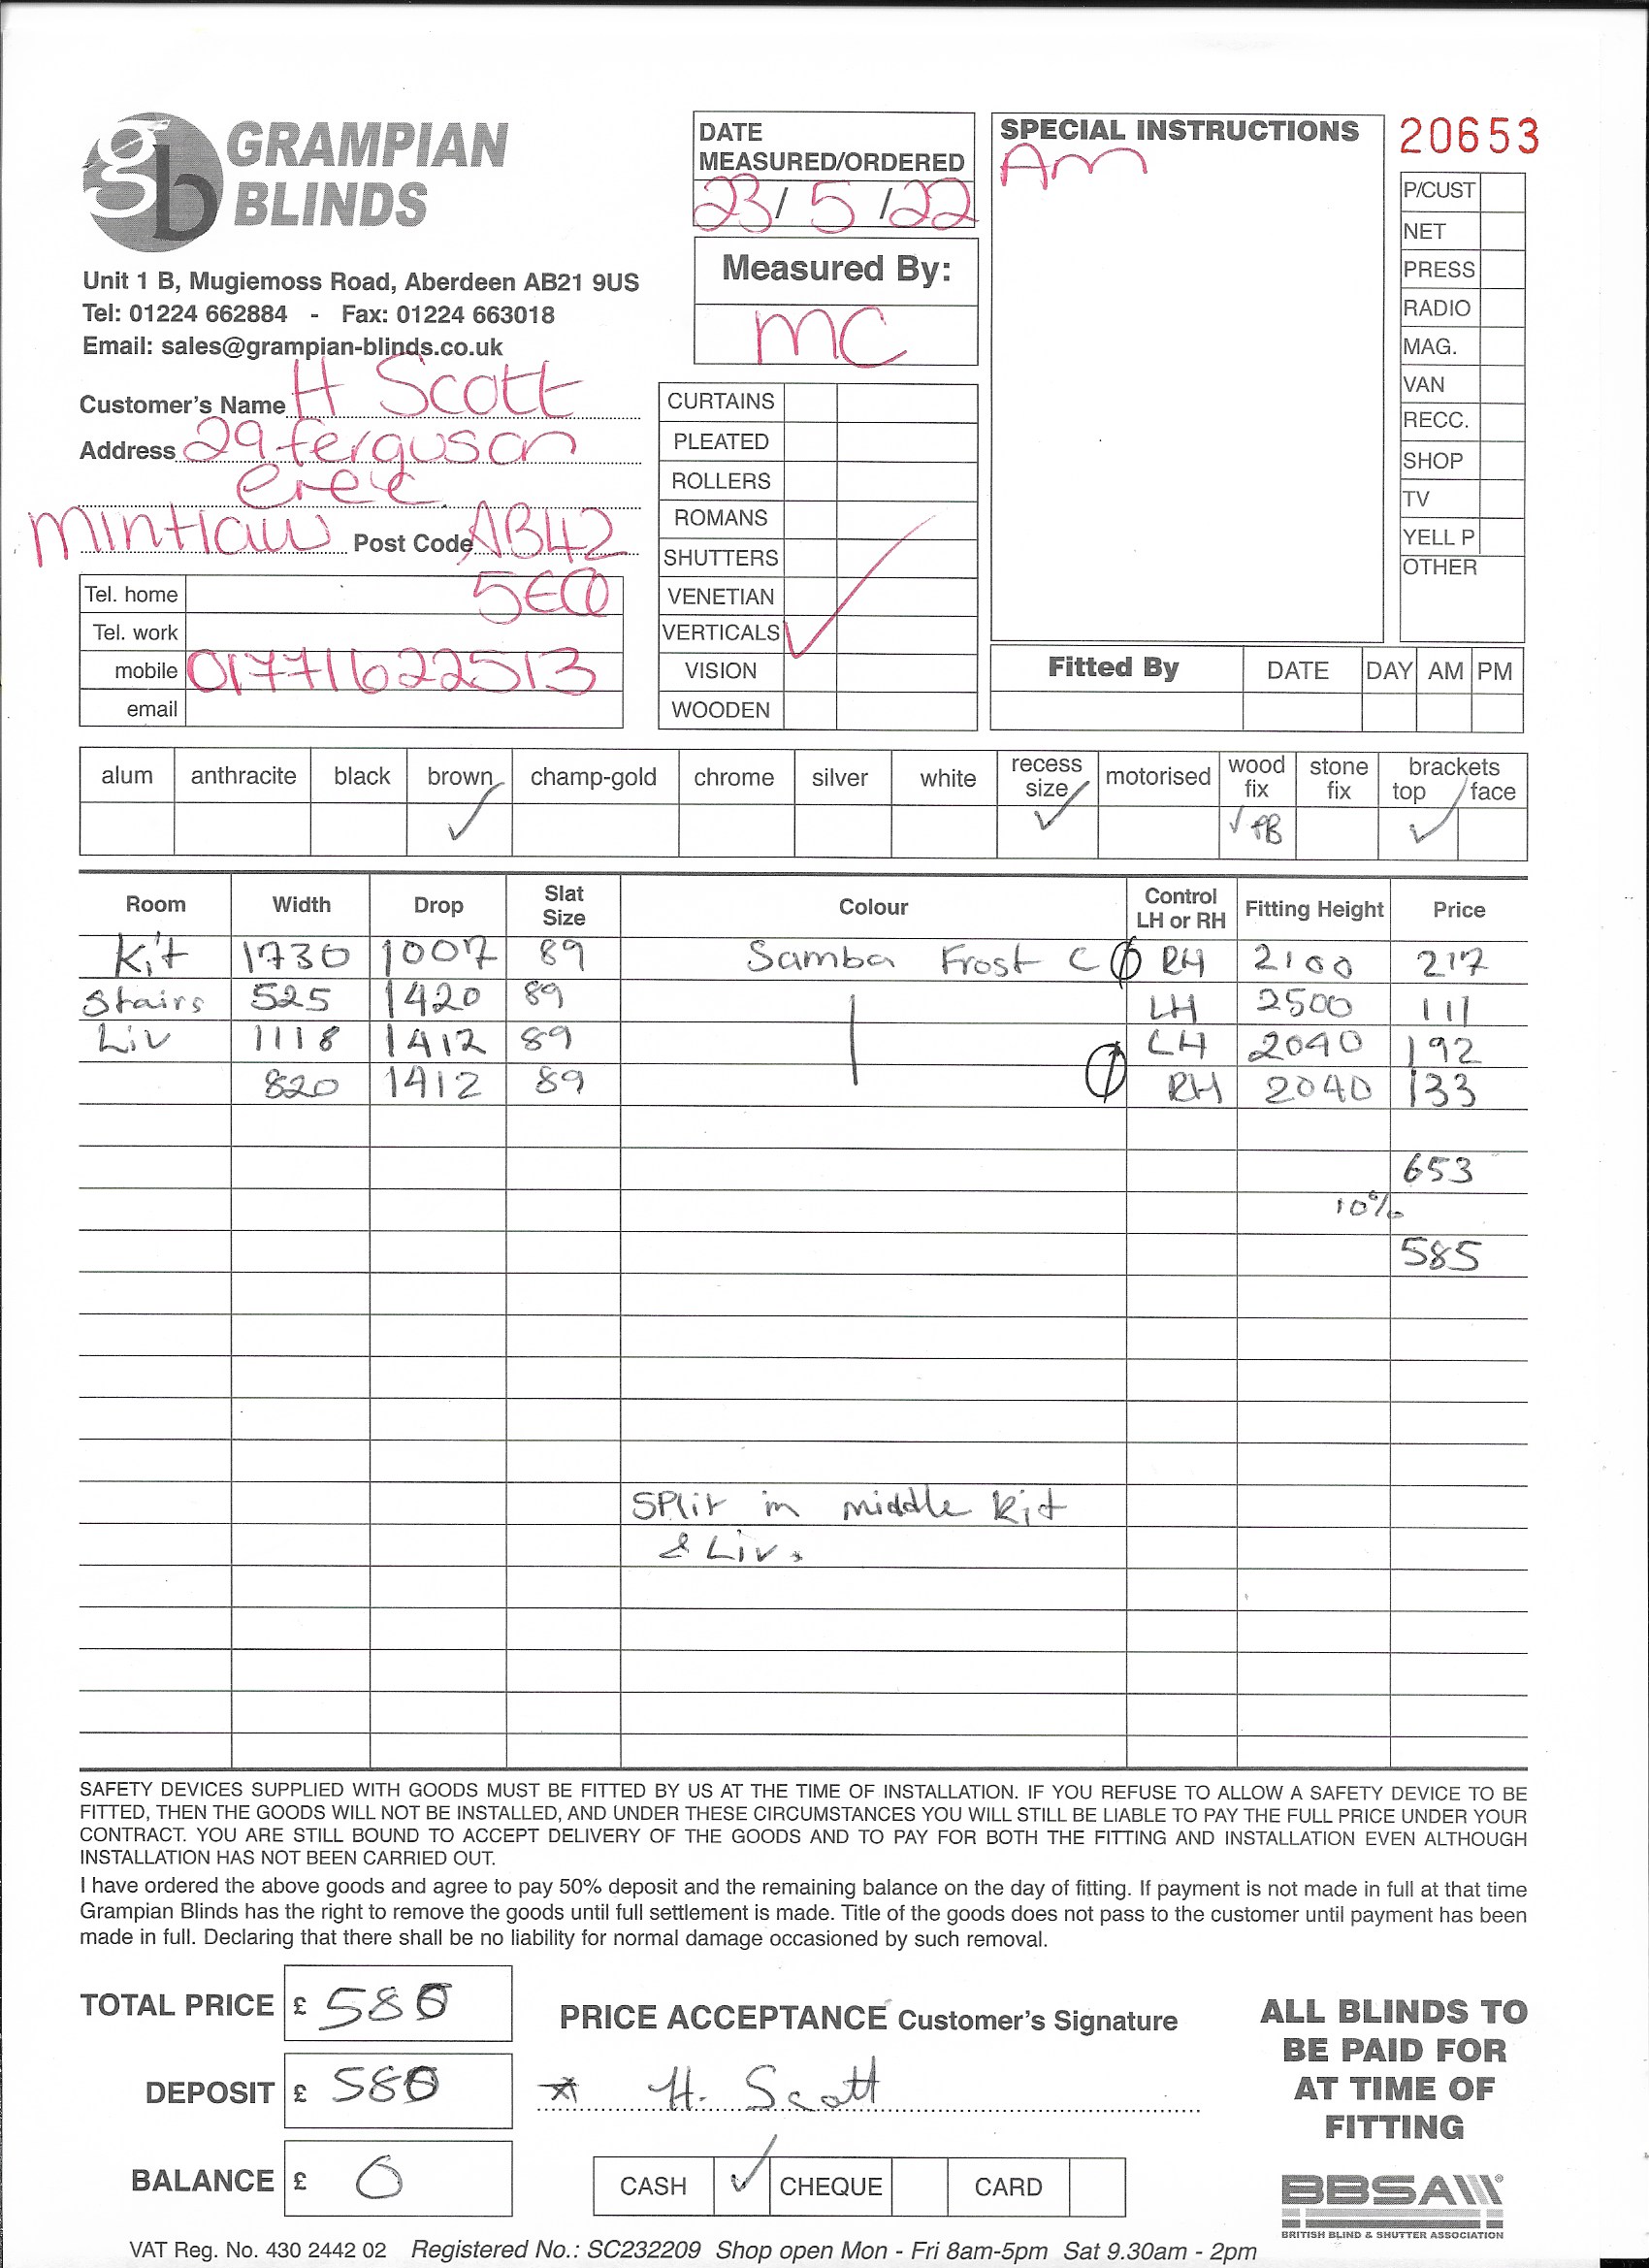 gb GRAMPIAN
BLINDS
Unit 1 B, Mugiemoss Road, Aberdeen AB21 9US
Tel: 01224 662884 - Fax: 01224 663018
Email: sales@grampian-blinds.co.uk
Customer's Name H Scott
Address 29 ferguson
cres
Mintlaw Post Code AB42
5EQ
Tel. home
Tel. work
mobile 01771622513
email
DATE
MEASURED/ORDERED
23/5/22
Measured By:
MC
CURTAINS
PLEATED
ROLLERS
ROMANS
SHUTTERS
VENETIAN
VERTICALS ✓
VISION
WOODEN
SPECIAL INSTRUCTIONS
Am
20653
P/CUST
NET
PRESS
RADIO
MAG.
VAN
RECC.
SHOP
TV
YELL P
OTHER
Fitted By DATE DAY AM PM
alum anthracite black brown champ-gold chrome silver white recess size motorised wood fix stone fix brackets top / face
✓ ✓ ✓ PB ✓
Room Width Drop Slat Size Colour Control LH or RH Fitting Height Price
Kit 1730 1007 89 Samba Frost C RH 2100 217
Stairs 525 1420 89 LH 2500 111
Liv 1118 1412 89 LH 2040 192
820 1412 89 RH 2040 133
653
10%
585
Split in middle Kit
& Liv.
SAFETY DEVICES SUPPLIED WITH GOODS MUST BE FITTED BY US AT THE TIME OF INSTALLATION. IF YOU REFUSE TO ALLOW A SAFETY DEVICE TO BE
FITTED, THEN THE GOODS WILL NOT BE INSTALLED, AND UNDER THESE CIRCUMSTANCES YOU WILL STILL BE LIABLE TO PAY THE FULL PRICE UNDER YOUR
CONTRACT. YOU ARE STILL BOUND TO ACCEPT DELIVERY OF THE GOODS AND TO PAY FOR BOTH THE FITTING AND INSTALLATION EVEN ALTHOUGH
INSTALLATION HAS NOT BEEN CARRIED OUT.
I have ordered the above goods and agree to pay 50% deposit and the remaining balance on the day of fitting. If payment is not made in full at that time
Grampian Blinds has the right to remove the goods until full settlement is made. Title of the goods does not pass to the customer until payment has been
made in full. Declaring that there shall be no liability for normal damage occasioned by such removal.
TOTAL PRICE £ 580
DEPOSIT £ 580
BALANCE £ 0
PRICE ACCEPTANCE Customer's Signature
* H. Scott
CASH ✓ CHEQUE CARD
ALL BLINDS TO
BE PAID FOR
AT TIME OF
FITTING
BBSA
BRITISH BLIND & SHUTTER ASSOCIATION
VAT Reg. No. 430 2442 02 Registered No.: SC232209 Shop open Mon - Fri 8am-5pm Sat 9.30am - 2pm